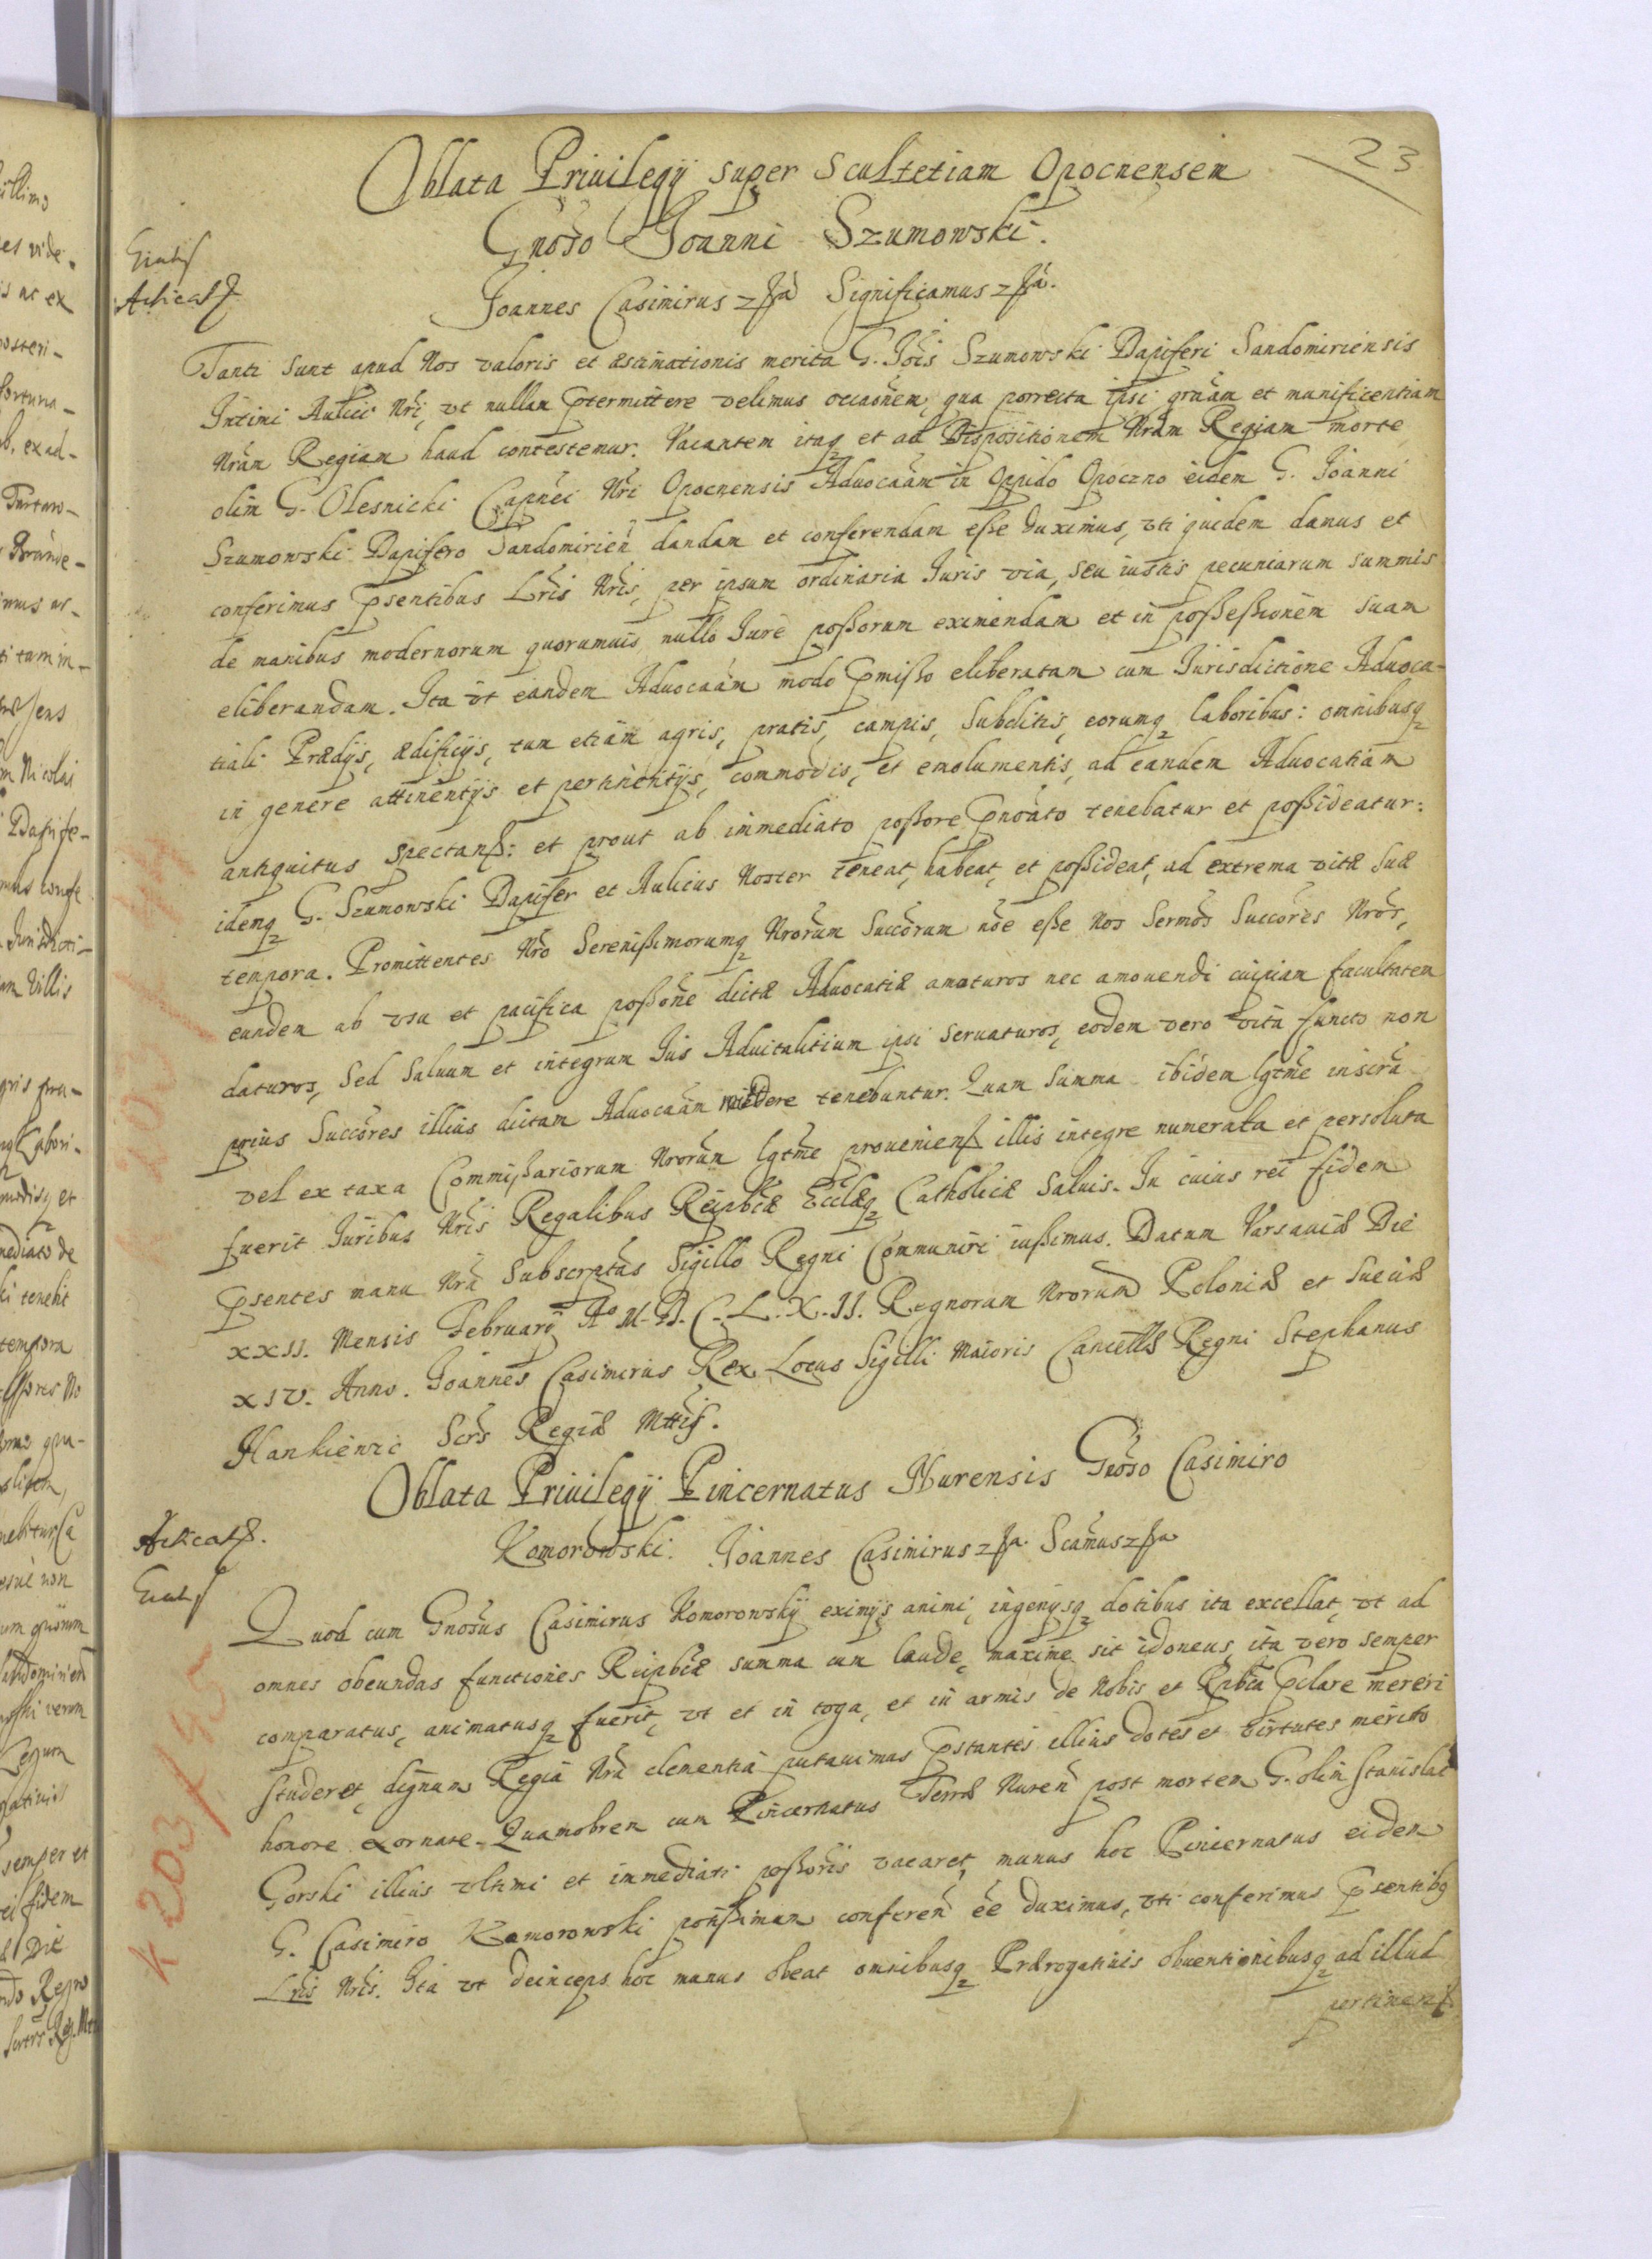 23
Oblata Priuilegij super Scultetiam Opocnensem
Gnoso Joanni Szumowski.
Joannes Casimirus Significamus
Tanti sunt apud Nos valoris et æstimationis merita G. Jois Szumowski Dapiferi Sandomiriensis
Intimi Aulici Nri, vt nullam ptermittere velimus occaonem, qua porrecta ipsi gratiam et munificentiam
Nram Regiam haud contestemur. Vacantem itaq et ad Dispositionem Nram Regiam morte
olim G. Olesnicki Capnei Nri Opocnensis Aduocaam in Oppido Opoczno eidem G. Joanni
Szumowski Dapifero Sandomirien dandam et conferendam esse duximus, vti quidem damus et
conferimus psentibus Lris Nris, per ipsum ordinaria Juris via, seu iustis pecuniarum summis
de manibus modernorum quorumuis nullo Jure possorum eximendam et in possessionem suam
eliberandam. Ita vt eandem Aduocaam modo pmisso eliberatam cum Jurisdictione Aduoca-
tiali Prædijs, ædificijs, tum etiam agris, pratis, campis, subditis, eorumq laboribus: omnibusq
in genere attinentijs et pertinentijs, commodis, et emolumentis, ad eandem Aduocatiam
antiquitus spectan: et prout ab immediato possore pnoato tenebatur et possideatur:
idemq G. Szumowski Dapifer et Aulicus Noster teneat, habeat, et possideat, ad extrema vitæ suæ
tempora. Promittentes Nro Serenissimorumq Nrorum Succorum noe esse Nos Sermos Succores Nros,
eundem ab vsu et pacifica possone dictæ Aduocatiæ amoturos nec amouendi cuipiam facultatem
daturos, sed saluum et integrum Jus Aduitalitium ipsi seruaturos, eodem vero vita functo non
prius Succores illius dictam Aduocaam cedere tenebuntur. Quam summa ibidem lgtme inscra
vel ex taxa Commissariorum Nrorum lgtme prouenien illis integre numerata et persoluta
fuerit Juribus Nris Regalibus Reipbcæ Ecclæq Catholicæ saluis. In cuius rei fidem
psentes manu Nra subscrptas Sigillo Regni Communiri iussimus. Datum Varsauiæ Die
XXII. Mensis Februarij Ao M.D.C.L.X.II. Regnorum Nrorum Poloniæ et Sueciæ
XIV. Anno. Joannes Casimirus Rex Locus Sigilli Maioris Cancellæ Regni Stephanus
Hankiewic Scrs Regiæ Mttis.
Oblata Priuilegij Pincernatus Nurensis Gnoso Casimiro
Komorowski. Joannes Casimirus Scamus
Quod cum Gnosus Casimirus Komorowskij eximijs animi, ingenijsq dotibus ita excellat, vt ad
omnes obeundas functiones Reipbcæ summa cum laude, maxime sit idoneus, ita vero semper
comparatus, animatusq fuerit, vt et in toga, et in armis de Nobis et Rpbca pclare mereri
studeret, dignum Regia Nra clementia putauimus pstantes illius dotes et virtutes merito
honore exornare. Quamobrem cum Pincernatus Terræ Nuren post mortem G. olim Stanislai
Gorski illius vltimi et immediati possoris vacaret, munus hoc Pincernatus eidem
G. Casimiro Komorowski potissimum conferen ee duximus, vti conferimus psentibq
Lris Nris. Ita vt deinceps hoc munus obeat omnibusq Prærogatiuis obuentionibusq ad illud
pertinen
K 203/95